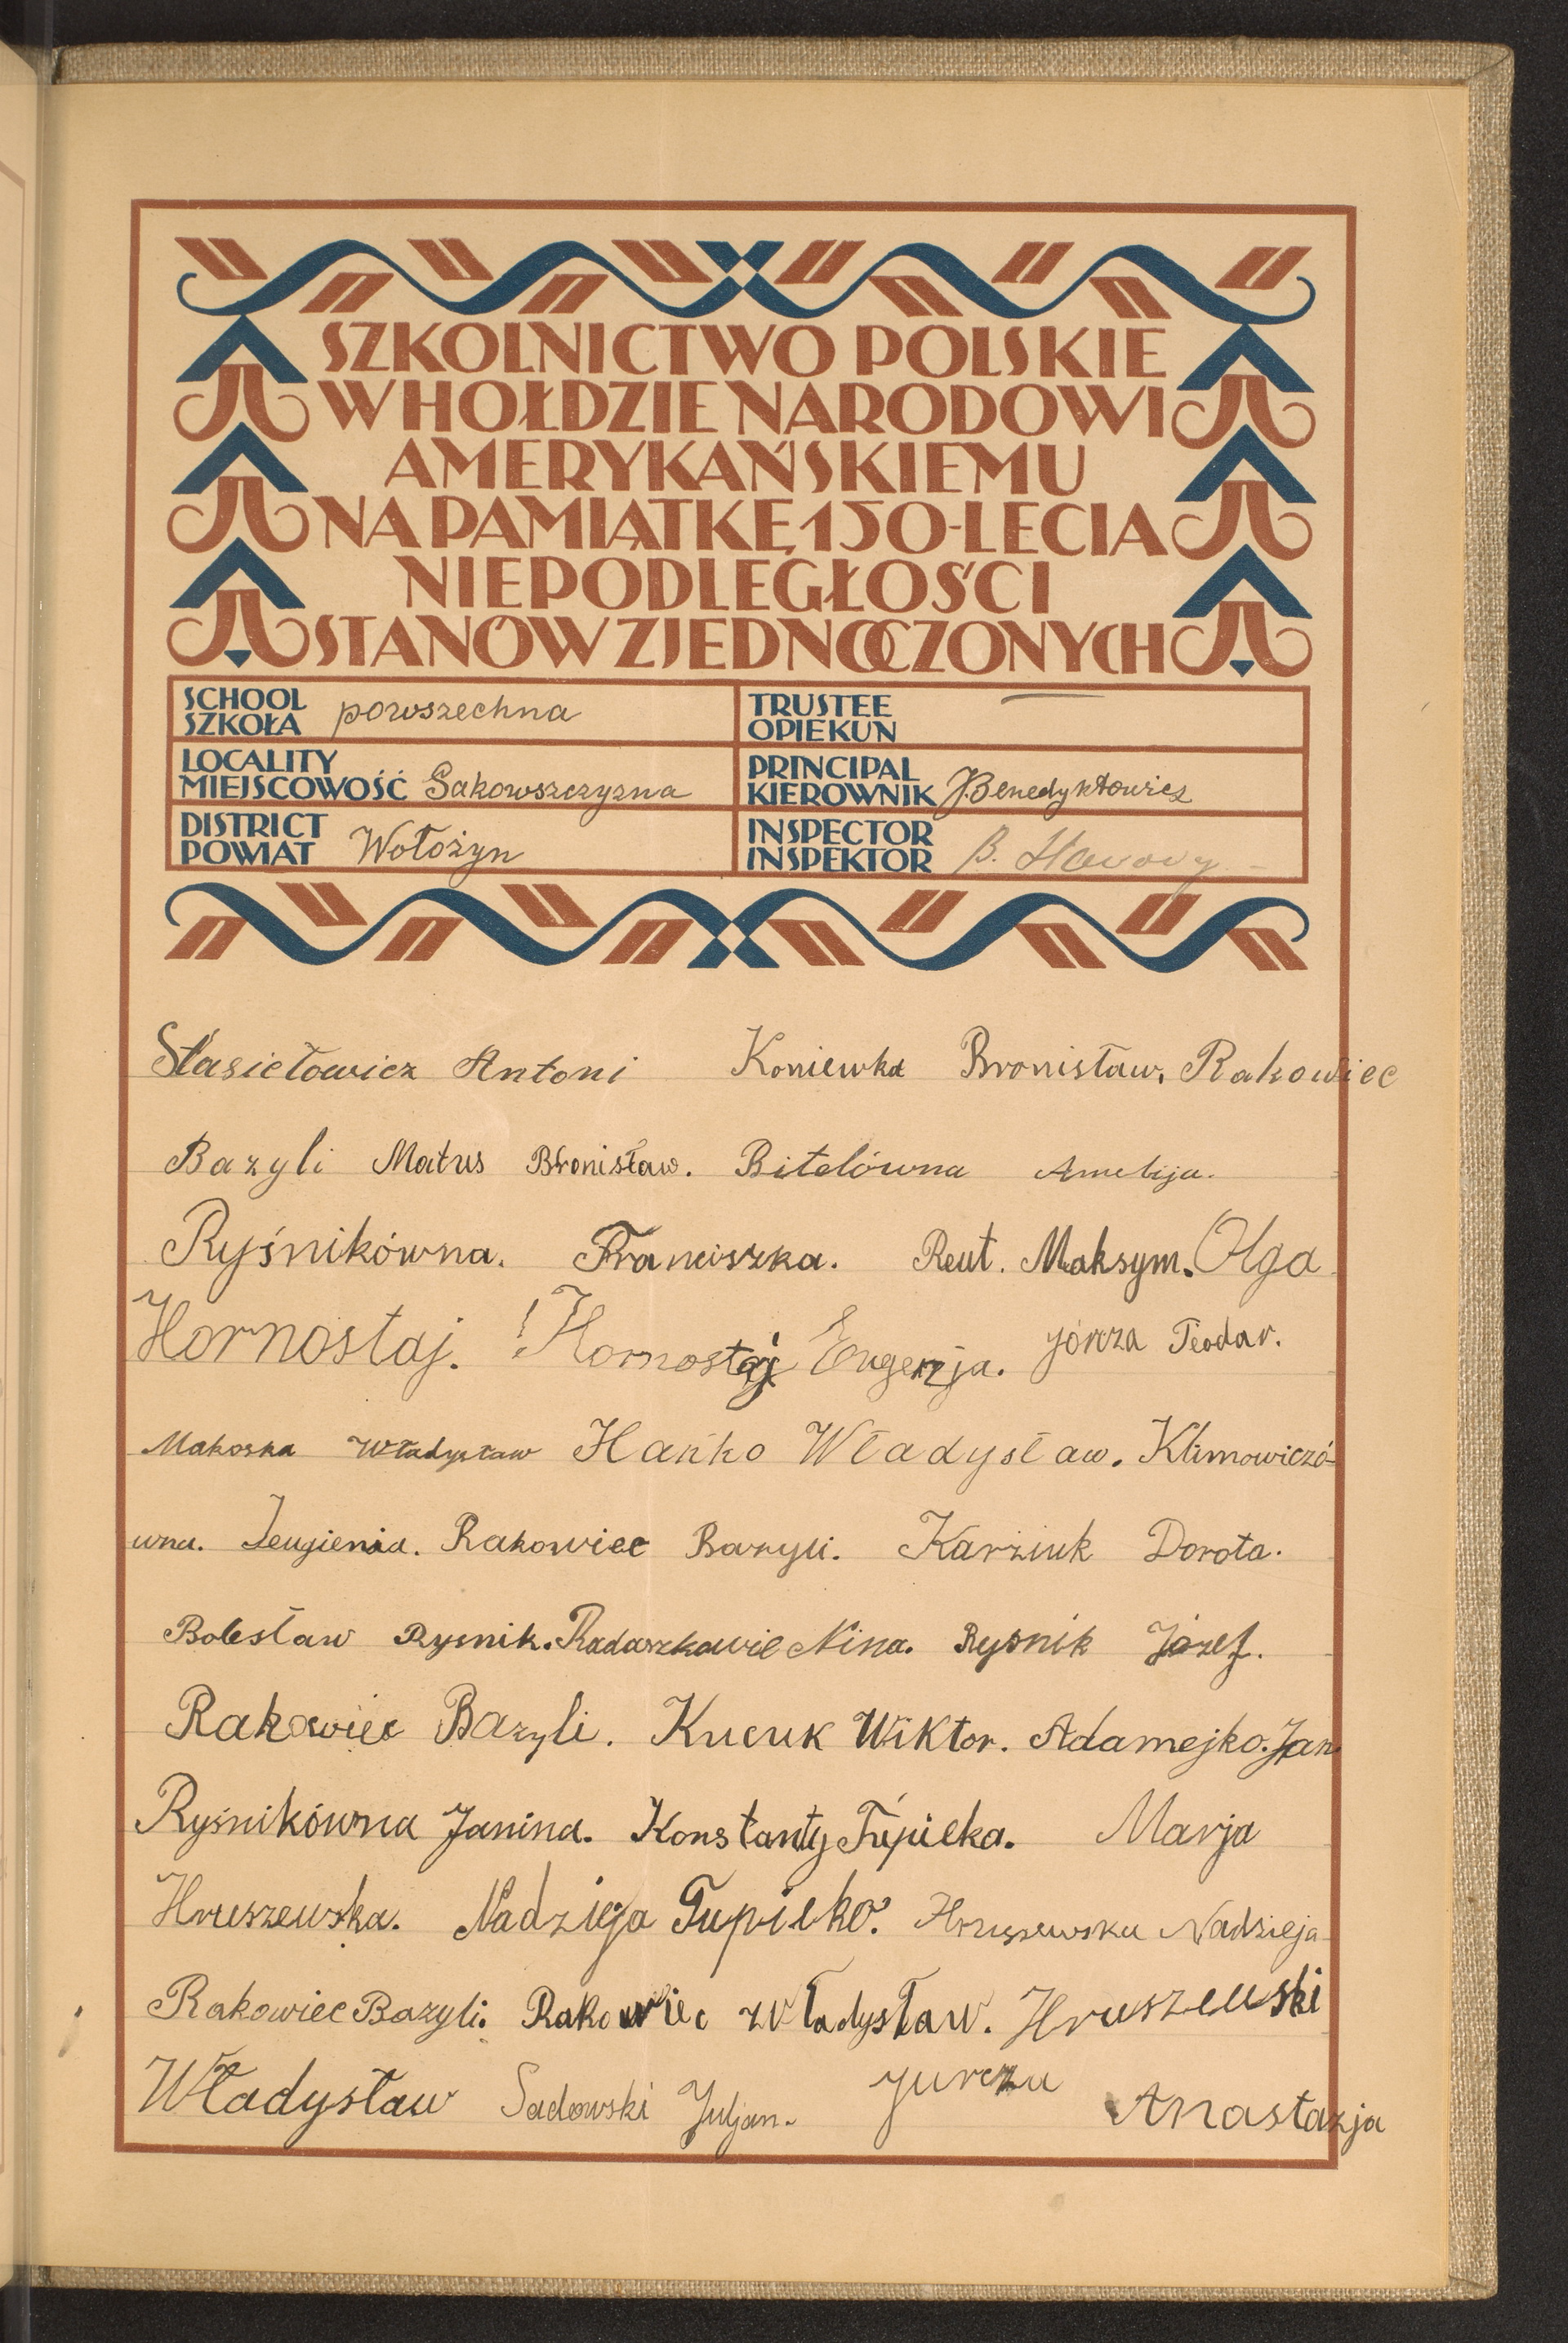 SZKOLNICTWO POLSKIE
W HOŁDZIE NARODOWI
AMERYKAŃSKIEMU
NA PAMIĄTKĘ 150-LECIA
NIEPODLEGŁOŚCI
STANÓW ZJEDNOCZONYCH
SCHOOL
SZKOŁA powszechna
TRUSTEE
OPIEKUN
LOCALITY
MIEJSCOWOŚĆ Sakowszczyzna
PRINCIPAL
KIEROWNIK J. Benedyktowicz
DISTRICT
POWIAT Wołożyn
INSPECTOR
INSPEKTOR B.
Stasiełowicz Antoni Koniewka Bronisław. Rakowiec
Bazyli Matus Bronisław. Bitelówna Amelija.
Ryśnikówna. Franciszka. Reut. Maksym. Olga
Hornostaj. Hornostaj Eugenja. Jórcza Teodar.
Makoska Władysław Hańko Władysław. Klimowiczó-
wna. Jeugienia. Rakowiec Bazyli. Karziuk Dorota.
Bolesław Rysnik. Radaszkawic Nina. Rysnik Józef.
Rakowiec Bazyli. Kucuk Wiktor. Adamejko. Jan
Ryśnikówna Janina. Konstanty Tupieka. Marja
Hruszewska. Nadzieja Tupieko. Hruszewska Nadzieja
Rakowiec Bazyli. Rakowiec Władysław. Hruszewski
Władysław Sadowski Juljan. Jurcza Anastazja